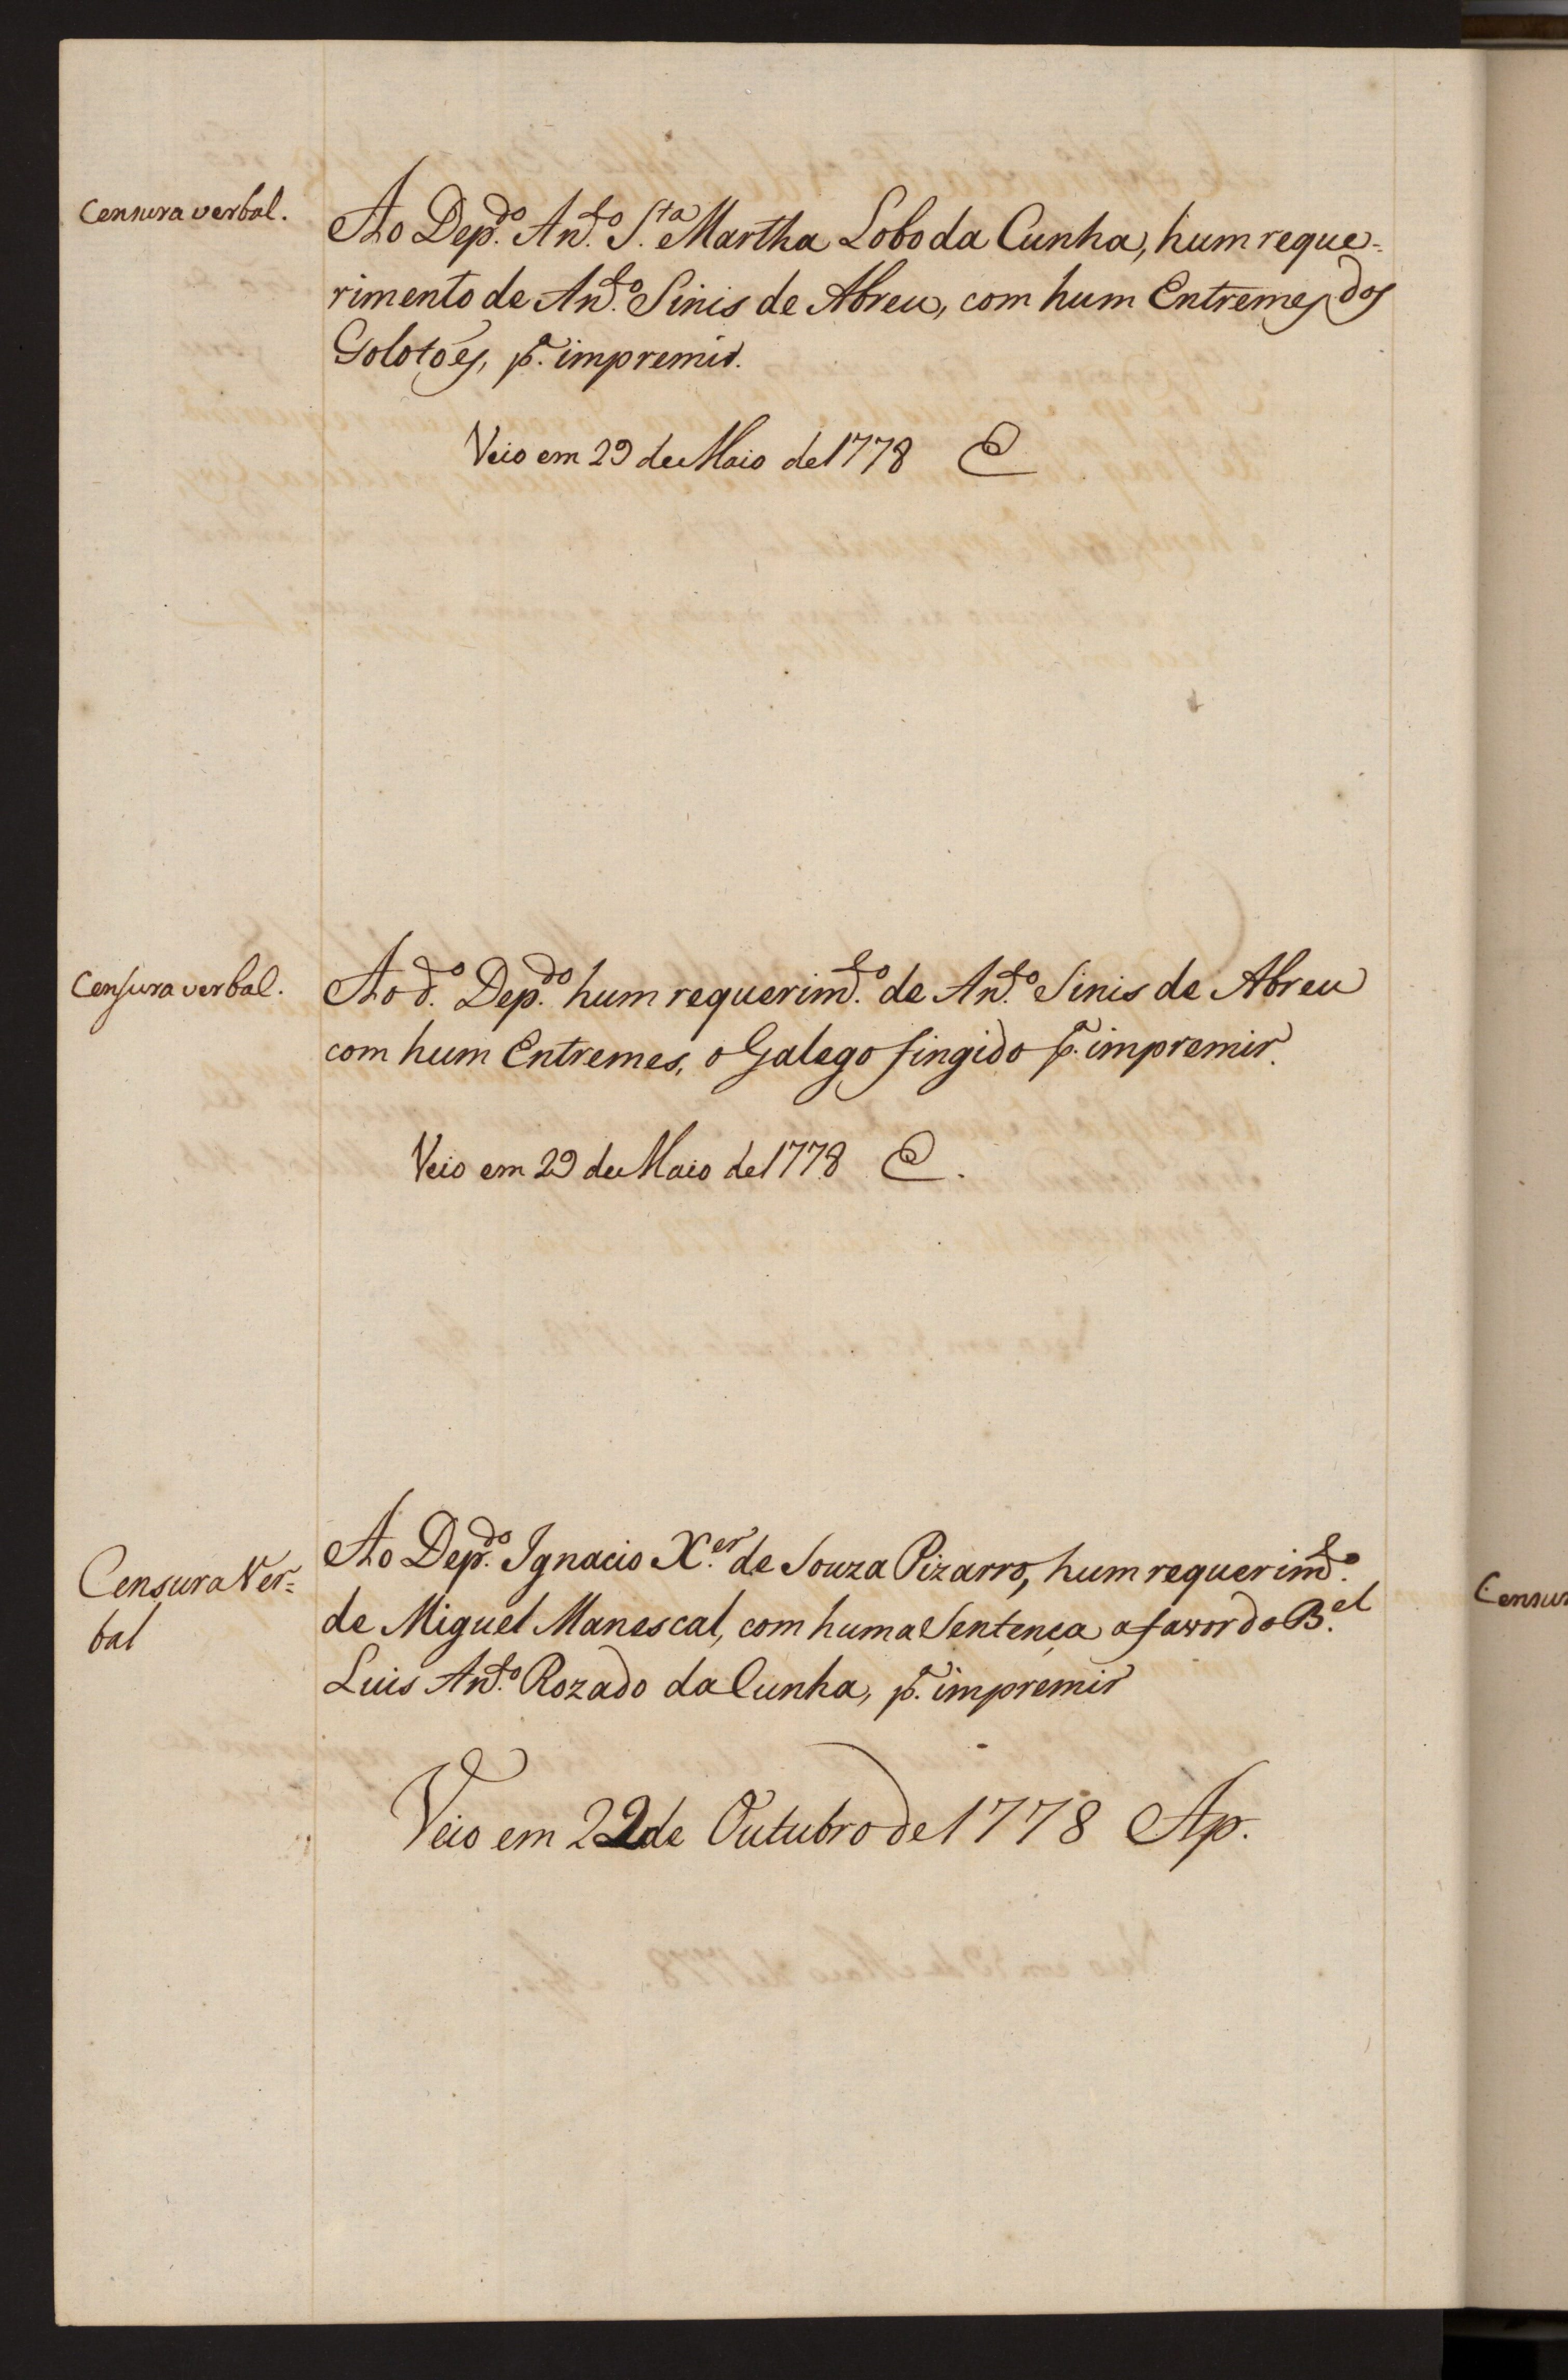 Censura verbal.
Ao Dep.do An.to S.ta Martha Lobo da Cunha, hum reque-
rimento de An.to Sinis de Abreu, com hum Entremes dos
Golotões, p.a impremir.
Veio em 29 de Maio de 1778 C
Censura verbal.
Ao d.o Dep.do hum requerim.to de An.to Sinis de Abreu
com hum Entremes, o Galego fingido p.a impremir.
Veio em 29 de Maio de 1778 C.
Censura Ver=
bal
Ao Dep.do Ignacio X.er de Souza Pizarro, hum requerim.to
de Miguel Manescal, com huma Sentença a favor do B.el
Luis An.to Rozado da Cunha, p.a impremir
Veio em 22 de Outubro de 1778 Ap.
Censur